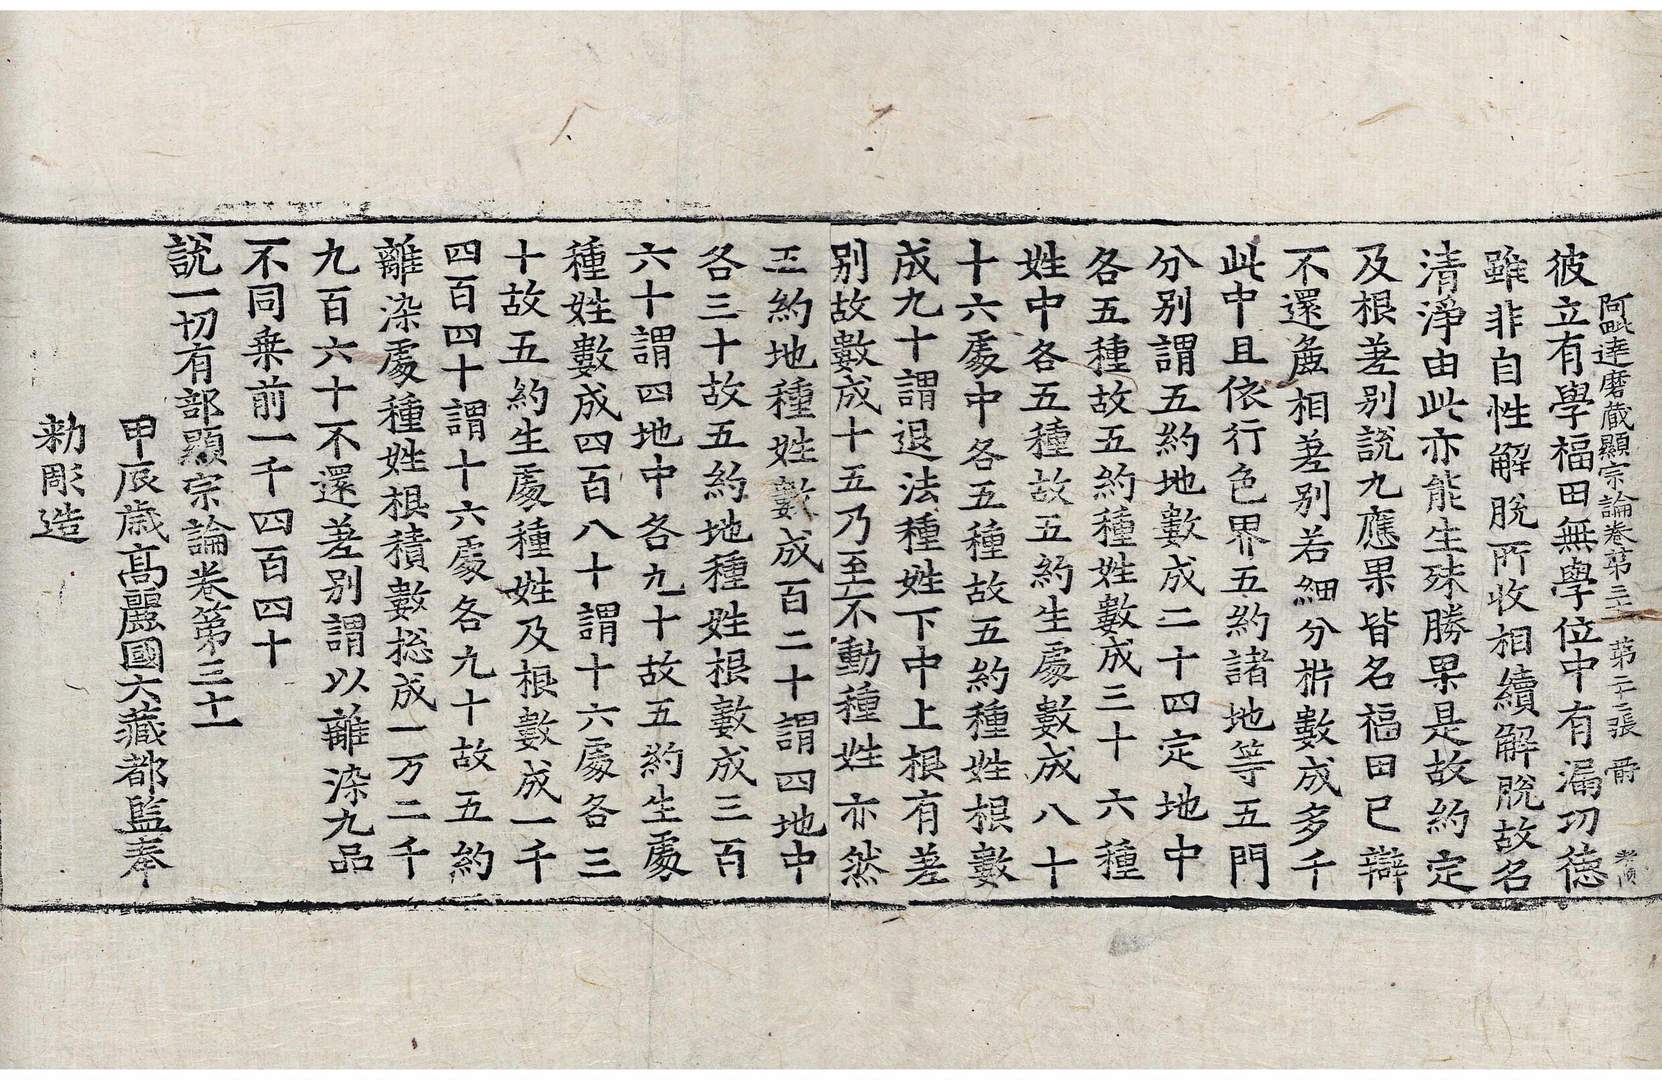 阿毗達磨藏顯宗論卷第三十一 第二十二張 爵
彼立有學福田無學位中有漏功德
雖非自性解脫所收相續解脫故名
清淨由此亦能生殊勝果是故約定
及根差別說九應果皆名福田已辯
不還麁相差別若細分析數成多千
此中且依行色界五約諸地等五門
分別謂五約地數成二十四定地中
各五種故五約種姓數成三十六種
姓中各五種故五約生處數成八十
十六處中各五種故五約種姓根數
成九十謂退法種姓下中上根有差
別故數成十五乃至不動種姓亦然
五約地種姓數成百二十謂四地中
各三十故五約地種姓根數成三百
六十謂四地中各九十故五約生處
種姓數成四百八十謂十六處各三
十故五約生處種姓及根數成一千
四百四十謂十六處各九十故五約
離染處種姓根積數揔成一万二千
九百六十不還差別謂以離染九品
不同乗前一千四百四十
說一切有部顯宗論卷第三十一
甲辰歲高麗國大藏都監奉
勅彫造